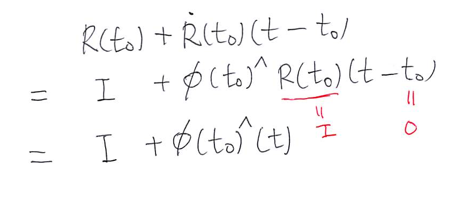 R(t₀) + Ṙ(t₀)(t − t₀)
= I + ϕ(t₀)^ R(t₀)(t − t₀)
= I + ϕ(t₀)^(t)
= I
= 0